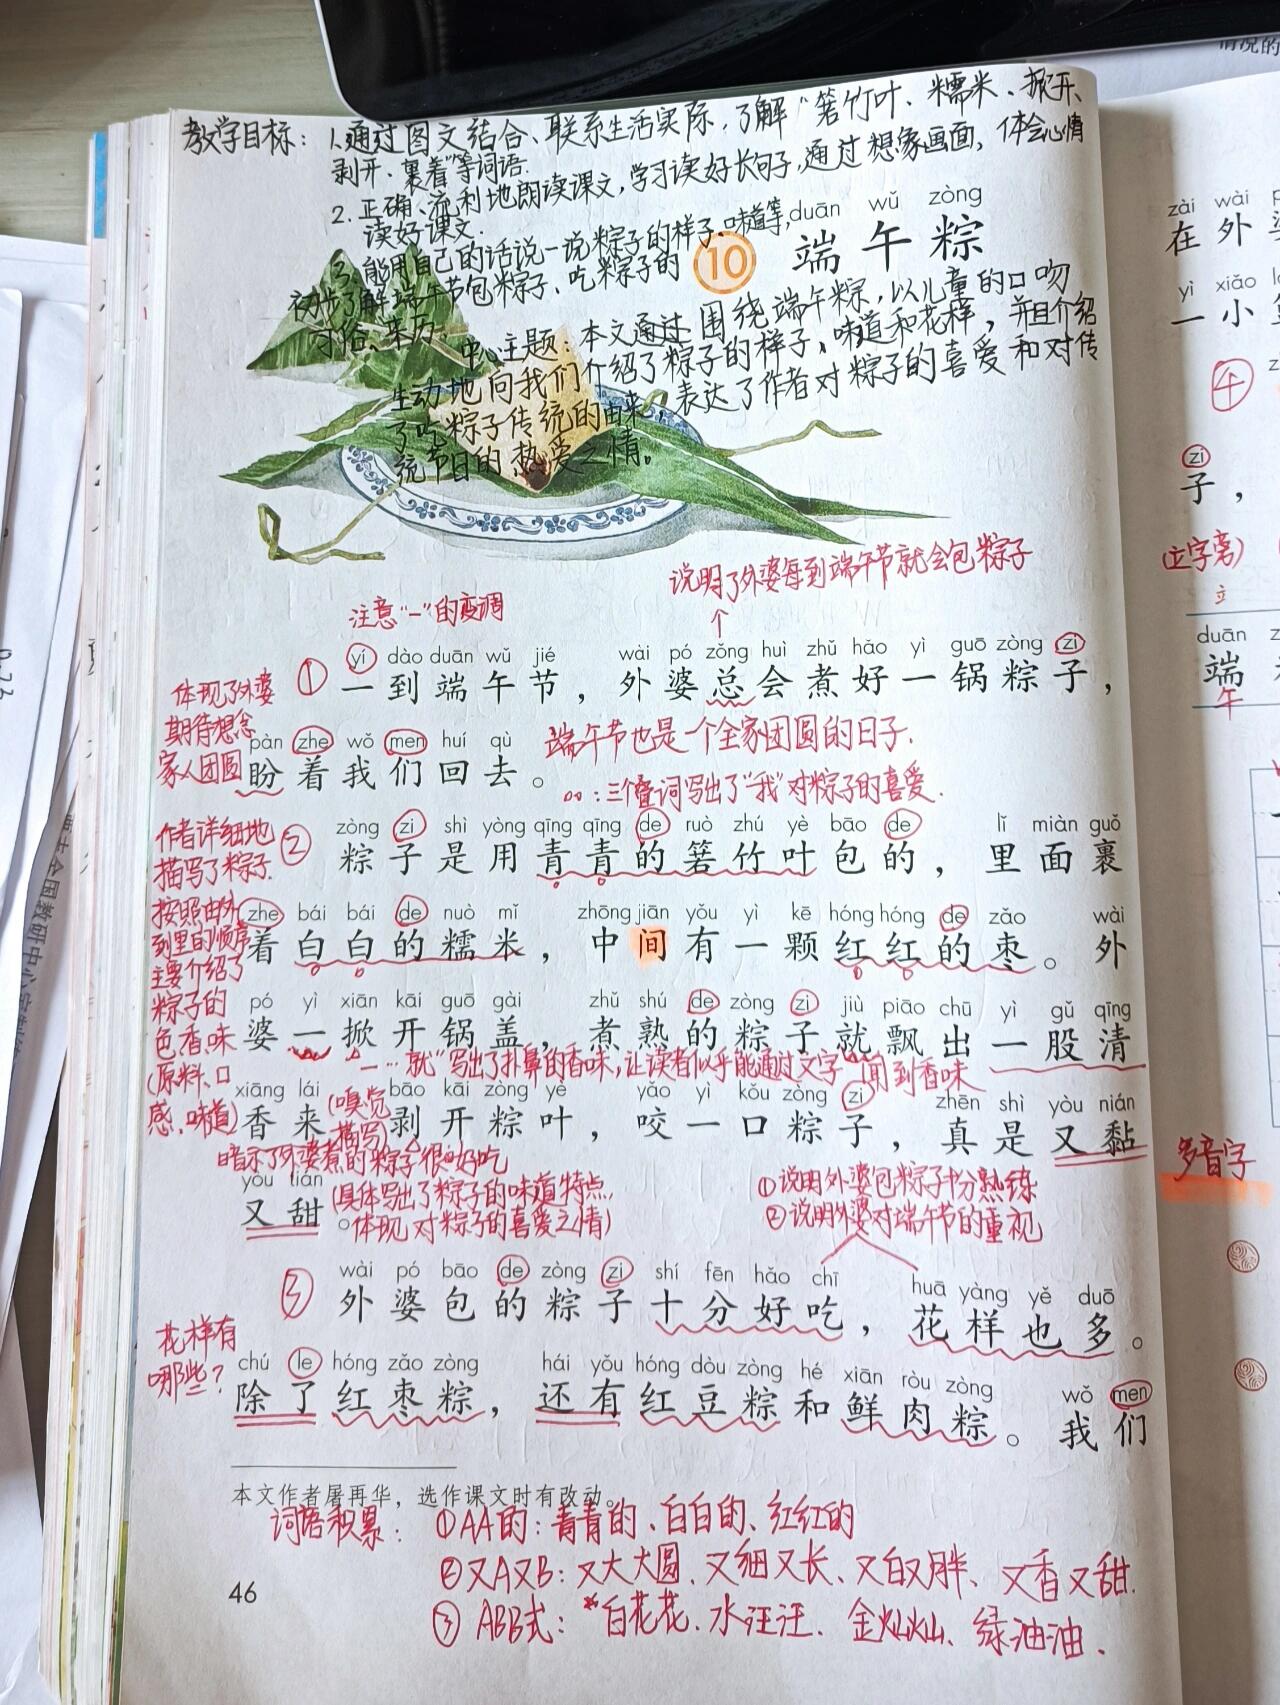 情况的
教学目标：1.通过图文结合、联系生活实际，了解"箬竹叶、糯米、掀开、
剥开、裹着"等词语.
2.正确、流利地朗读课文，学习读好长句子，通过想象画面，体会心情
读好课文.
3.能用自己的话说一说粽子的样子、味道等，
初步了解端午节包粽子、吃粽子的
习俗、来历.
duān wǔ zòng
10 端午粽
中心主题：本文通过围绕端午粽，以儿童的口吻
生动地向我们介绍了粽子的样子，味道和花样，并且介绍
了吃粽子传统的由来，表达了作者对粽子的喜爱和对传
统节日的热爱之情。
说明了外婆每到端午节就会包粽子
注意"一"的变调
yí dào duān wǔ jié wài pó zǒng huì zhǔ hǎo yì guō zòng zi
① 一到端午节，外婆总会煮好一锅粽子，
体现了外婆
期待想念
家人团圆
pàn zhe wǒ men huí qù
盼着我们回去。
端午节也是一个全家团圆的日子.
。。：三个叠词写出了"我"对粽子的喜爱.
作者详细地
描写了粽子.
zòng zi shì yòng qīng qīng de ruò zhú yè bāo de lǐ miàn guǒ
② 粽子是用青青的箬竹叶包的，里面裹
按照由外
到里的顺序
主要介绍了
粽子的
色、香、味
(原料、口
感、味道)
zhe bái bái de nuò mǐ zhōng jiān yǒu yì kē hóng hóng de zǎo wài
着白白的糯米，中间有一颗红红的枣。外
pó yì xiān kāi guō gài zhǔ shú de zòng zi jiù piāo chū yì gǔ qīng
婆一掀开锅盖，煮熟的粽子就飘出一股清
一…就"写出了扑鼻的香味，让读者似乎能通过文字"闻到香味
xiāng lái bāo kāi zòng yè yǎo yì kǒu zòng zi zhēn shì yòu nián
香来，剥开粽叶，咬一口粽子，真是又黏
(嗅觉
描写)
暗示了外婆煮的粽子很好吃
yòu tián
又甜。
(具体写出了粽子的味道特点，
体现对粽子的喜爱之情)
①说明外婆包粽子十分熟练
②说明外婆对端午节的重视
wài pó bāo de zòng zi shí fēn hǎo chī huā yàng yě duō
③ 外婆包的粽子十分好吃，花样也多。
花样有
哪些？
chú le hóng zǎo zòng hái yǒu hóng dòu zòng hé xiān ròu zòng wǒ men
除了红枣粽，还有红豆粽和鲜肉粽。我们
本文作者屠再华，选作课文时有改动。
词语积累：①AA的：青青的、白白的、红红的
②又A又B：又大又圆、又细又长、又白又胖、又香又甜.
③ABB式：白花花、水汪汪、金灿灿、绿油油.
46
zài wài
在外
yì xiǎo
一小
午
zi
子，
(立字旁)
立
duān
端
午
多音字